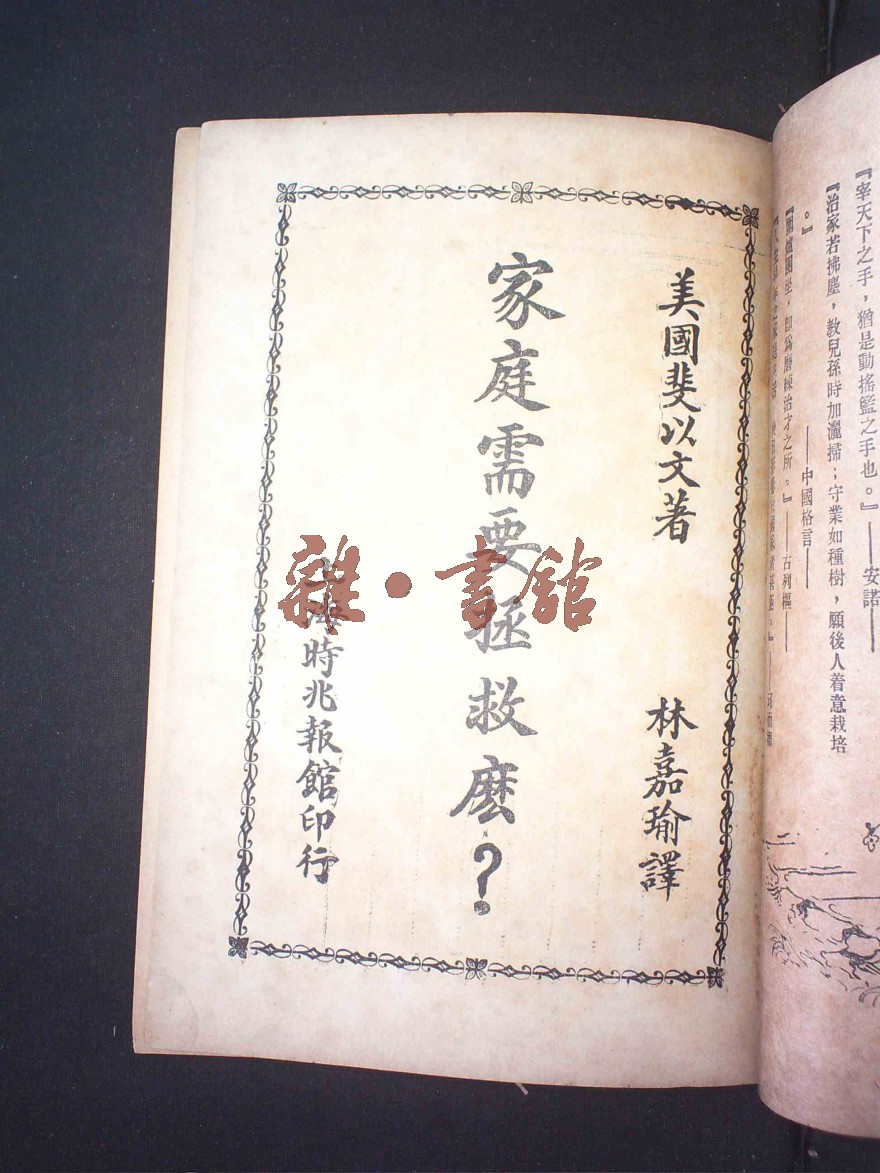 『宰天下之手，猶是動搖籃之手也。』——安諾——
『治家若拂塵，教兒孫時加灑掃；守業如種樹，願後人着意栽培
。』
——中國格言——
『圍爐團坐，即為磨練治才之所。』——古列樞——
美國斐以文著
林嘉瑜譯
家庭需要拯救麽？
上海時兆報館印行
雜·書館